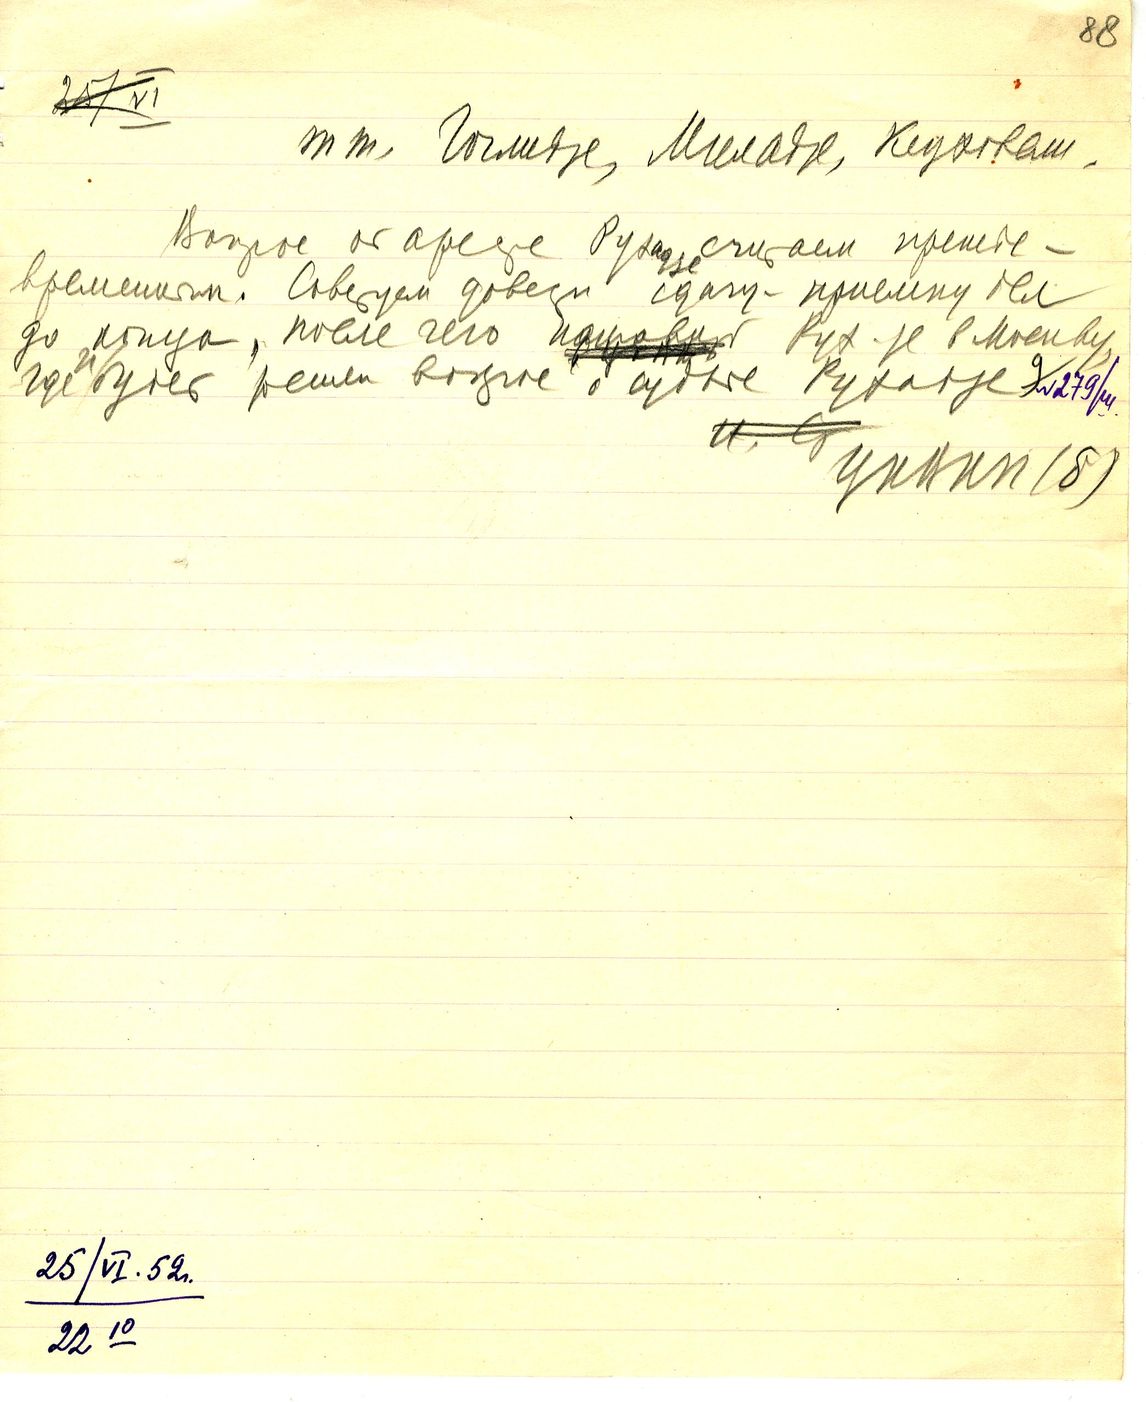 88
25/VI
т т. Гоглидзе, Мгеладзе, Кецховели.
Вопрос об аресте Рухадзе считаем прежде-
временным. Советуем довести сдачу-приемку дел
до конца, после чего Рух-зе в Москву,
где и будет решен вопрос о судьбе Рухадзе № 279/ш.
И. Ст
ЦКВКП(б)
25/VI.52г.
22 10